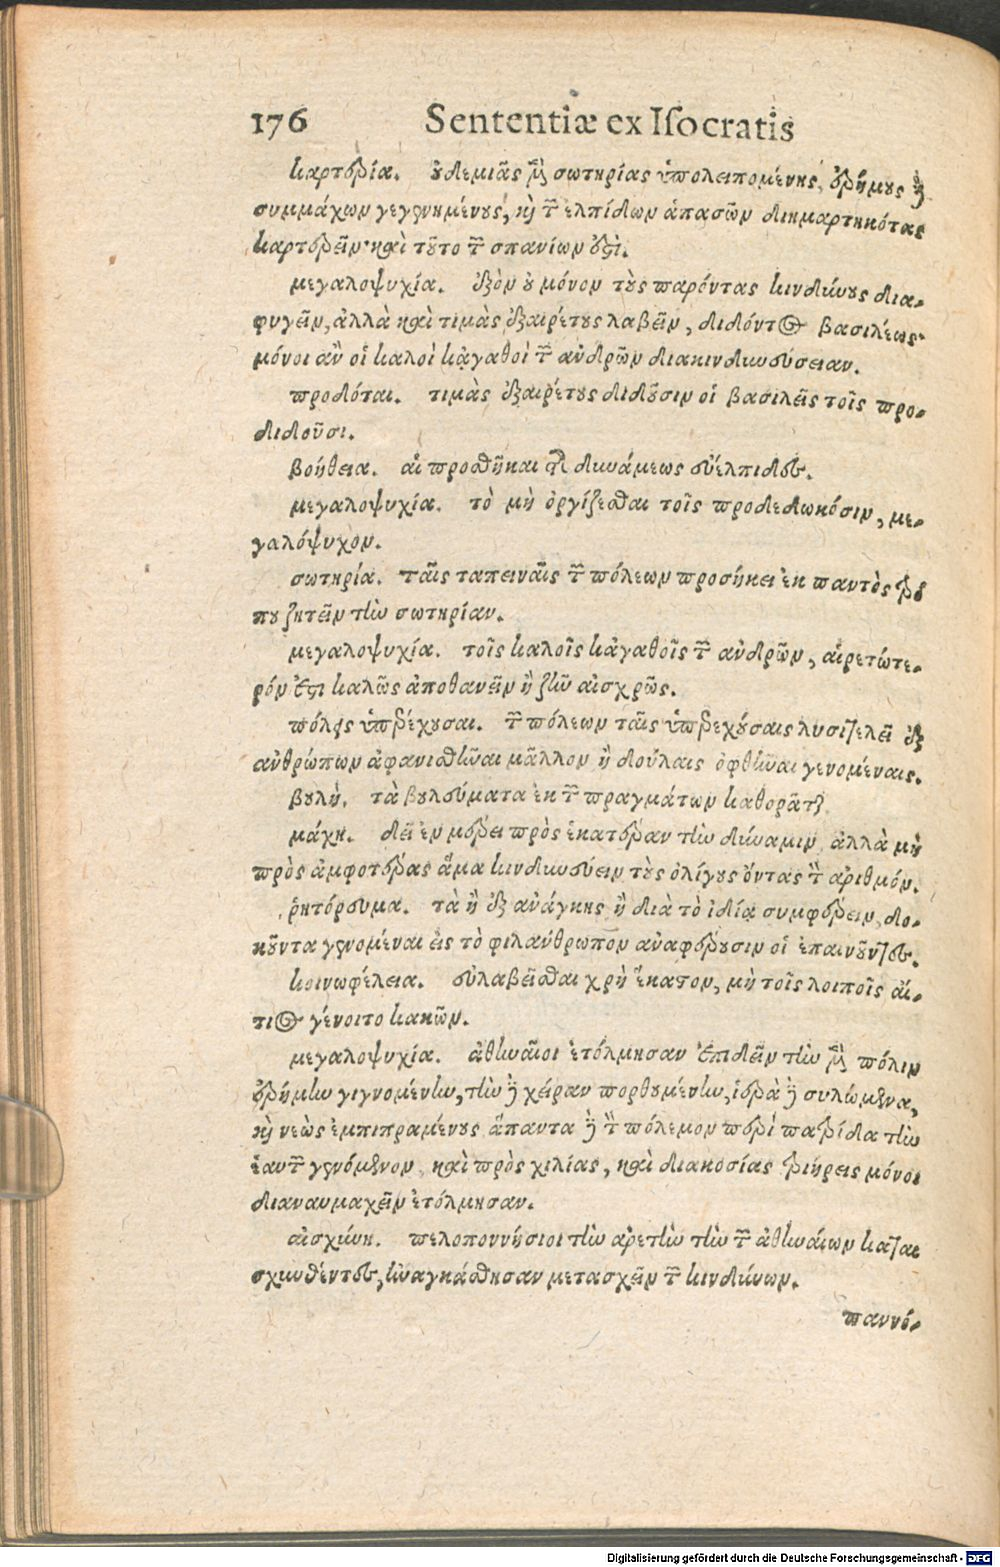 176 Sententiæ ex Iſocratis
καρτερία. οὐδεμιᾶς μὲν σωτηρίας ὑπολειπομένης, ἐρήμους δὲ
συμμάχων γεγενημένους, καὶ τῶν ἐλπίδων ἁπασῶν διημαρτηκότας
καρτερεῖν· καὶ τοῦτο τῶν σπανίων ἐστί.
μεγαλοψυχία. ἐξὸν οὐ μόνον τοὺς παρόντας κινδύνους δια-
φυγεῖν, ἀλλὰ καὶ τιμὰς ἐξαιρέτους λαβεῖν, διδόντος βασιλέως·
μόνοι ἂν οἱ καλοὶ κἀγαθοὶ τῶν ἀνδρῶν διακινδυνεύσειαν.
προδόται. τιμὰς ἐξαιρέτους διδοῦσιν οἱ βασιλεῖς τοῖς προ-
διδοῦσι.
βοήθεια. αἱ προσθῆκαι τῆς δυνάμεως εὐέλπιδες.
μεγαλοψυχία. τὸ μὴ ὀργίζεσθαι τοῖς προδεδωκόσιν, με-
γαλόψυχον.
σωτηρία. ταῖς ταπειναῖς τῶν πόλεων προσήκει ἐκ παντὸς τρό
που ζητεῖν τὴν σωτηρίαν.
μεγαλοψυχία. τοῖς καλοῖς κἀγαθοῖς τῶν ἀνδρῶν, αἱρετώτε-
ρόν ἐστι καλῶς ἀποθανεῖν ἢ ζῆν αἰσχρῶς.
πόλεις ὑπερέχουσαι. τῶν πόλεων ταῖς ὑπερεχούσαις λυσιτελεῖ ἐξ
ἀνθρώπων ἀφανισθῆναι μᾶλλον ἢ δούλαις ὀφθῆναι γενομέναις.
βουλή. τὰ βουλεύματα ἐκ τῶν πραγμάτων καθορᾶται
μάχη. δεῖ ἐν μέρει πρὸς ἑκατέραν τὴν δύναμιν, ἀλλὰ μὴ
πρὸς ἀμφοτέρας ἅμα κινδυνεύειν τοὺς ὀλίγους ὄντας τὸν ἀριθμόν.
ῥητόρευμα. τὰ ἢ ἐξ ἀνάγκης ἢ διὰ τὸ ἰδίᾳ συμφέρειν, δο-
κοῦντα γενομέναι εἰς τὸ φιλάνθρωπον ἀναφέρουσιν οἱ ἐπαινοῦντες.
κοινωφέλεια. εὐλαβεῖσθαι χρὴ ἕκαστον, μὴ τοῖς λοιποῖς αἴ-
τιος γένοιτο κακῶν.
μεγαλοψυχία. ἀθηναῖοι ἐτόλμησαν ἐπιδεῖν τὴν μὲν πόλιν
ἐρήμην γιγνομένην, τὴν δὲ χώραν πορθουμένην, ἱερὰ δὲ συλώμενα,
καὶ νεὼς ἐμπιπραμένους ἅπαντα δὲ τὸν πόλεμον περὶ πατρίδα τὴν
ἑαυτῶν γενόμενον, καὶ πρὸς χιλίας, καὶ διακοσίας τριήρεις μόνοι
διαναυμαχεῖν ἐτόλμησαν.
αἰσχύνη. πελοποννήσιοι τὴν ἀρετὴν τὴν τῶν ἀθηναίων καται
σχυνθέντες, ἠναγκάσθησαν μετασχεῖν τῶν κινδύνων.
παννό-
Digitalisierung gefördert durch die Deutsche Forschungsgemeinschaft - DFG